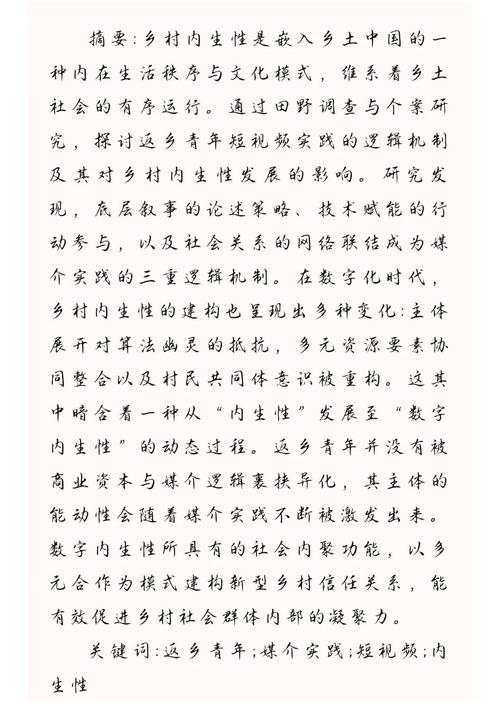 摘要:乡村内生性是嵌入乡土中国的一
种内在生活秩序与文化模式，维系着乡土
社会的有序运行。通过田野调查与个案研
究，探讨返乡青年短视频实践的逻辑机制
及其对乡村内生性发展的影响。研究发
现，底层叙事的论述策略、技术赋能的行
动参与，以及社会关系的网络联结成为媒
介实践的三重逻辑机制。在数字化时代，
乡村内生性的建构也呈现出乡种变化:主体
展开对算法幽灵的抵抗，多元资源要素协
同整合以及村民共同体意识被重构。这其
中暗含着一种从“内生性”发展至“数字
内生性”的动态过程。返乡青年并没有被
商业资本与媒介逻辑裹挟异化，其主体的
能动性会随着媒介实践不断被激发出来。
数字内生性所具有的社会内聚功能，以多
元合作为模式建构新型乡村信任关系，能
有效促进乡村社会群体内部的凝聚力。
关键词:返乡青年;媒介实践;短视频;内
生性